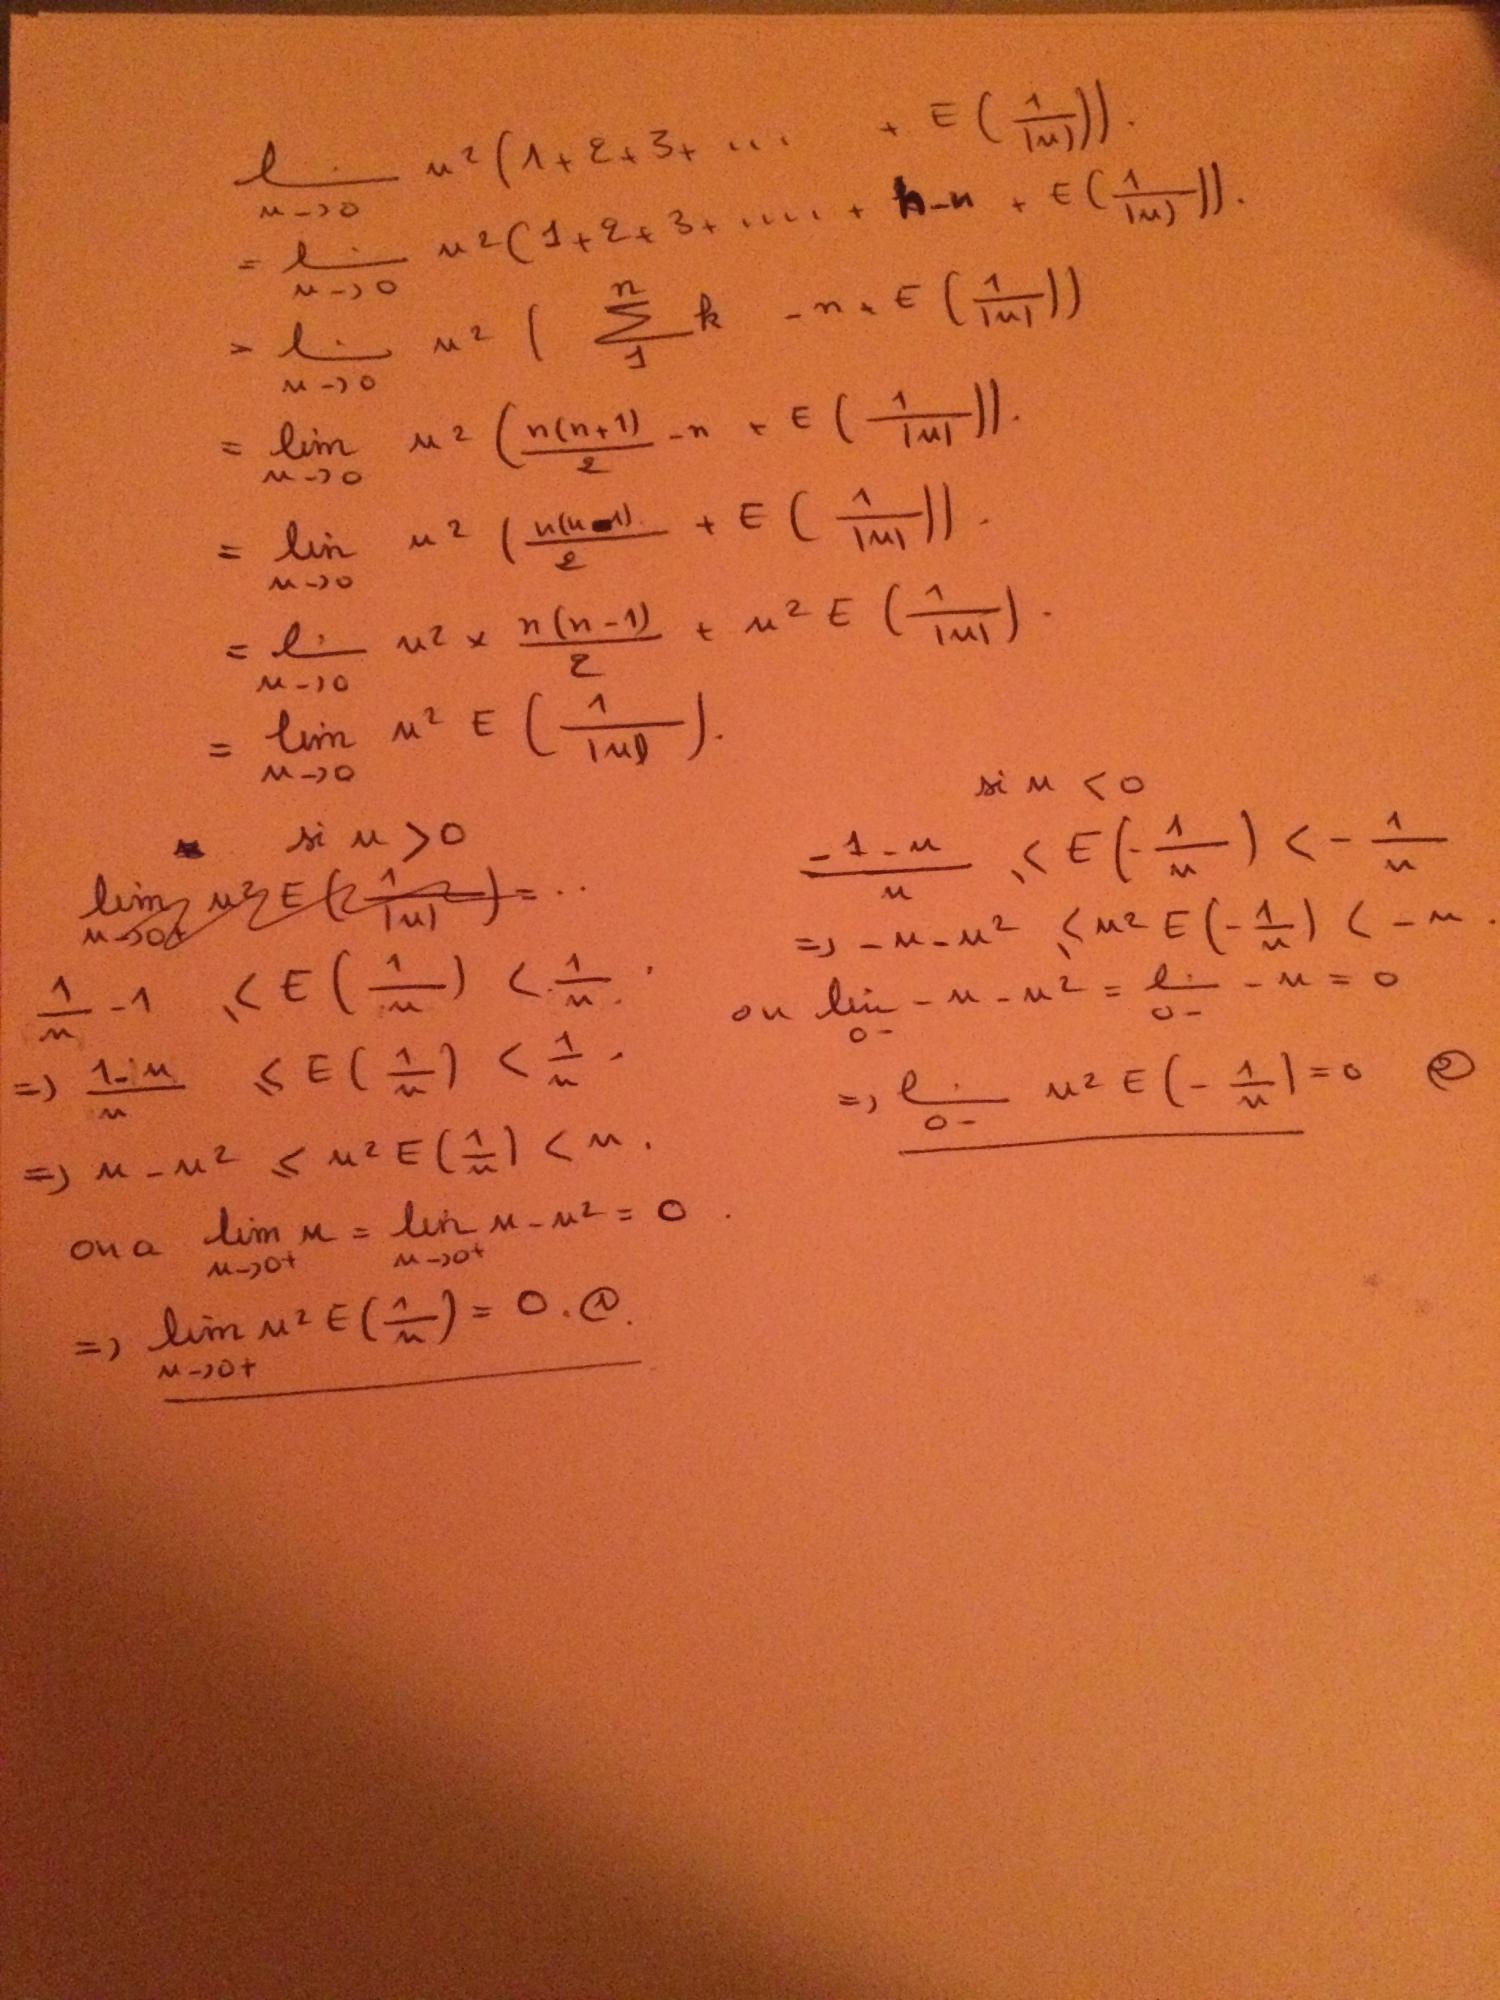 lim x→0 x² (1 + 2 + 3 + ... + E(1/|x|)).
= lim x→0 x² (1 + 2 + 3 + .... + n - n + E(1/|x|)).
= lim x→0 x² ( ∑₁ⁿ k - n + E(1/|x|))
= lim x→0 x² (n(n+1)/2 - n + E(1/|x|)).
= lim x→0 x² (n(n-1)/2 + E(1/|x|)).
= lim x→0 x² × n(n-1)/2 + x² E(1/|x|).
= lim x→0 x² E(1/|x|).
si x > 0
lim x→0+ x² E(1/|x|) = ..
1/x - 1 ≤ E(1/x) < 1/x.
=> 1-x/x ≤ E(1/x) < 1/x.
=> x - x² ≤ x² E(1/x) < x.
on a lim x→0+ x = lim x→0+ x - x² = 0.
=> lim x→0+ x² E(1/x) = 0. ①.
si x < 0
-1-x/x ≤ E(-1/x) < -1/x
=> -x - x² ≤ x² E(-1/x) < -x.
on lim 0- -x - x² = lim 0- -x = 0
=> lim 0- x² E(-1/x) = 0 ②